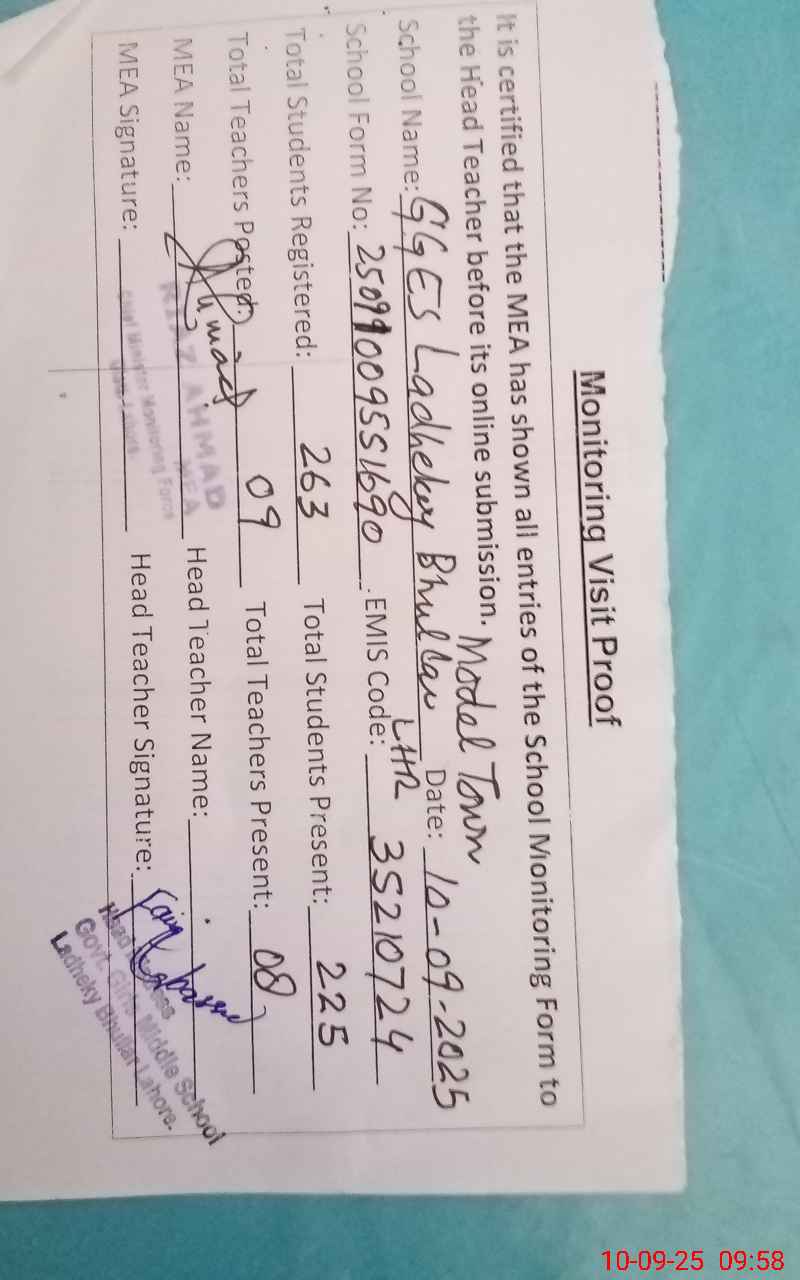 Monitoring Visit Proof
It is certified that the MEA has shown all entries of the School Monitoring Form to
the Head Teacher before its online submission. Model Town
School Name: GGES Ladheky Bhullar LHR Date: 10-09-2025
School Form No: 25099009551690 EMIS Code: 35210724
Total Students Registered: 263 Total Students Present: 225
Total Teachers Posted: 09 Total Teachers Present: 08
MEA Name: RIAZ AHMAD Head Teacher Name:
MEA
MEA Signature: Chief Minister Monitoring Force Head Teacher Signature:
Govt. Girls Middle School
Ladheky Bhullar Lahore.
10-09-25 09:58